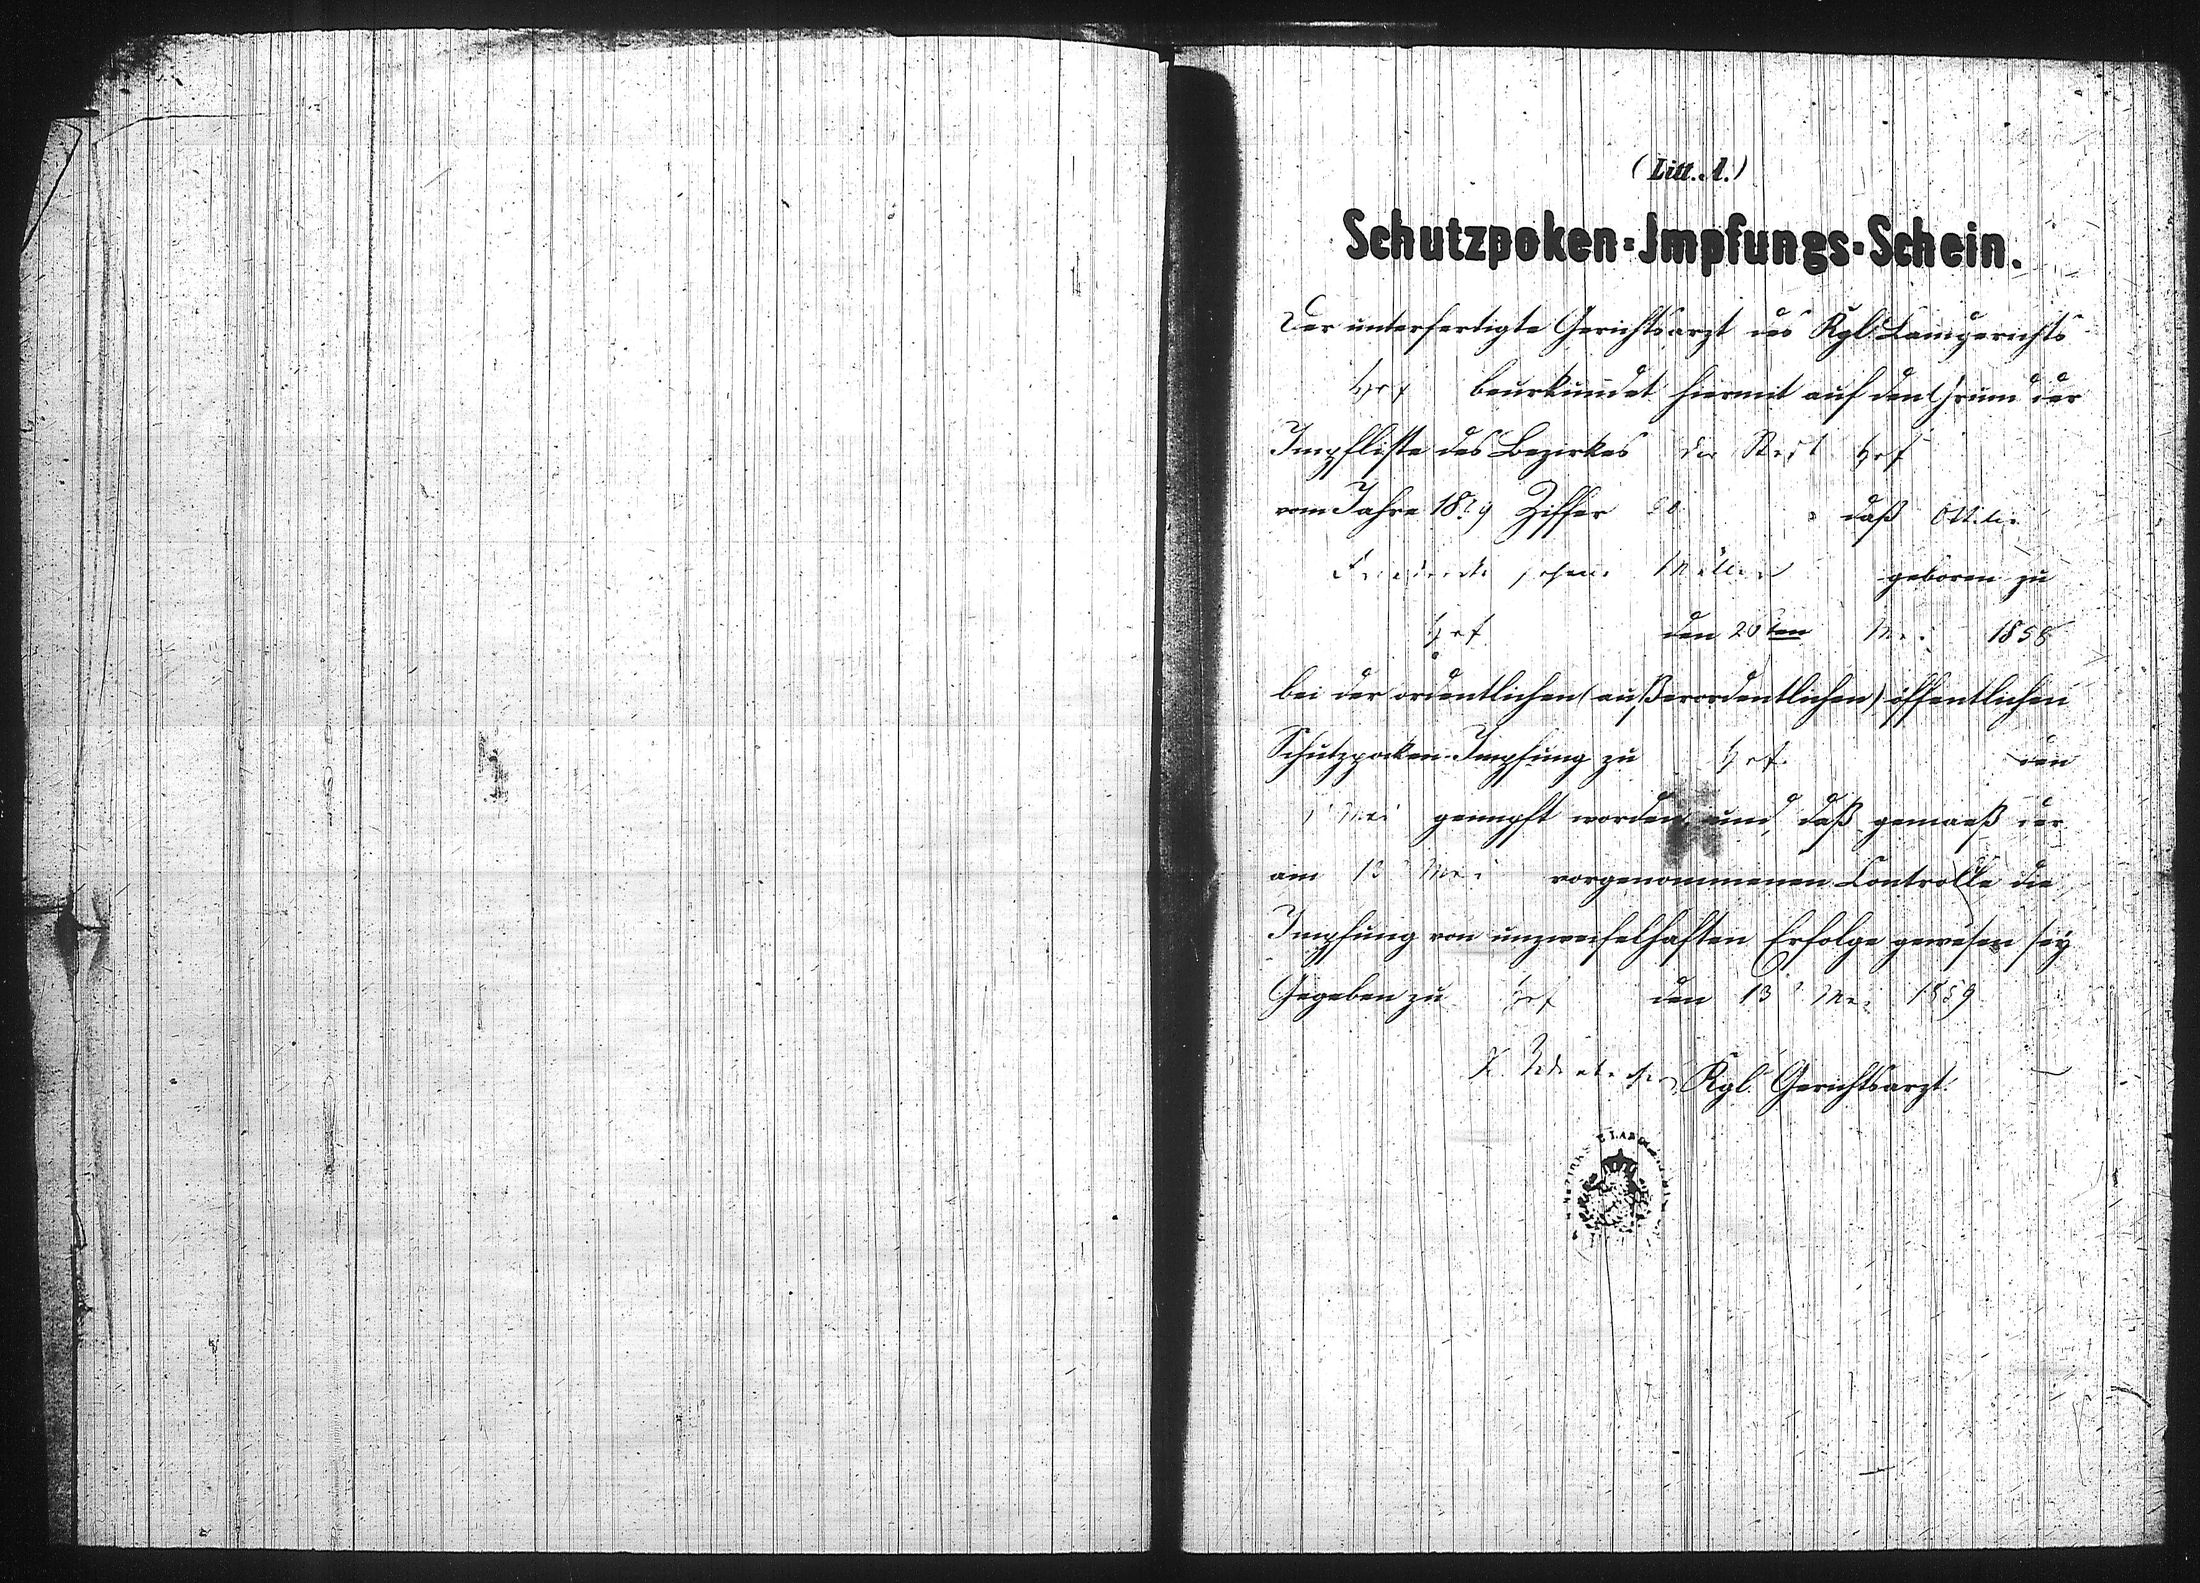 (Litt. A.)
Schutzpoken-Impfungs-Schein.
Der unterfertigte Gerichtsarzt des Kgl. Landgerichts
Hof beurkundet hiermit auf den Grund der
Impfliste des Bezirkes der Stadt Hof
vom Jahre 1859 Ziffer daß Ottilie
Müller geboren zu
Hof den 20ten Mai 1858
bei der ordentlichen (außerordentlichen) öffentlichen
Schutzpocken-Impfung zu Hof den
Mai geimpft worden und daß gemaeß der
am 13 Mai vorgenommenen Controlle die
Impfung von unzweifelhaften Erfolge gewesen sey
Gegeben zu Hof den 13 Mai 1859
Kgl. Gerichtsarzt.